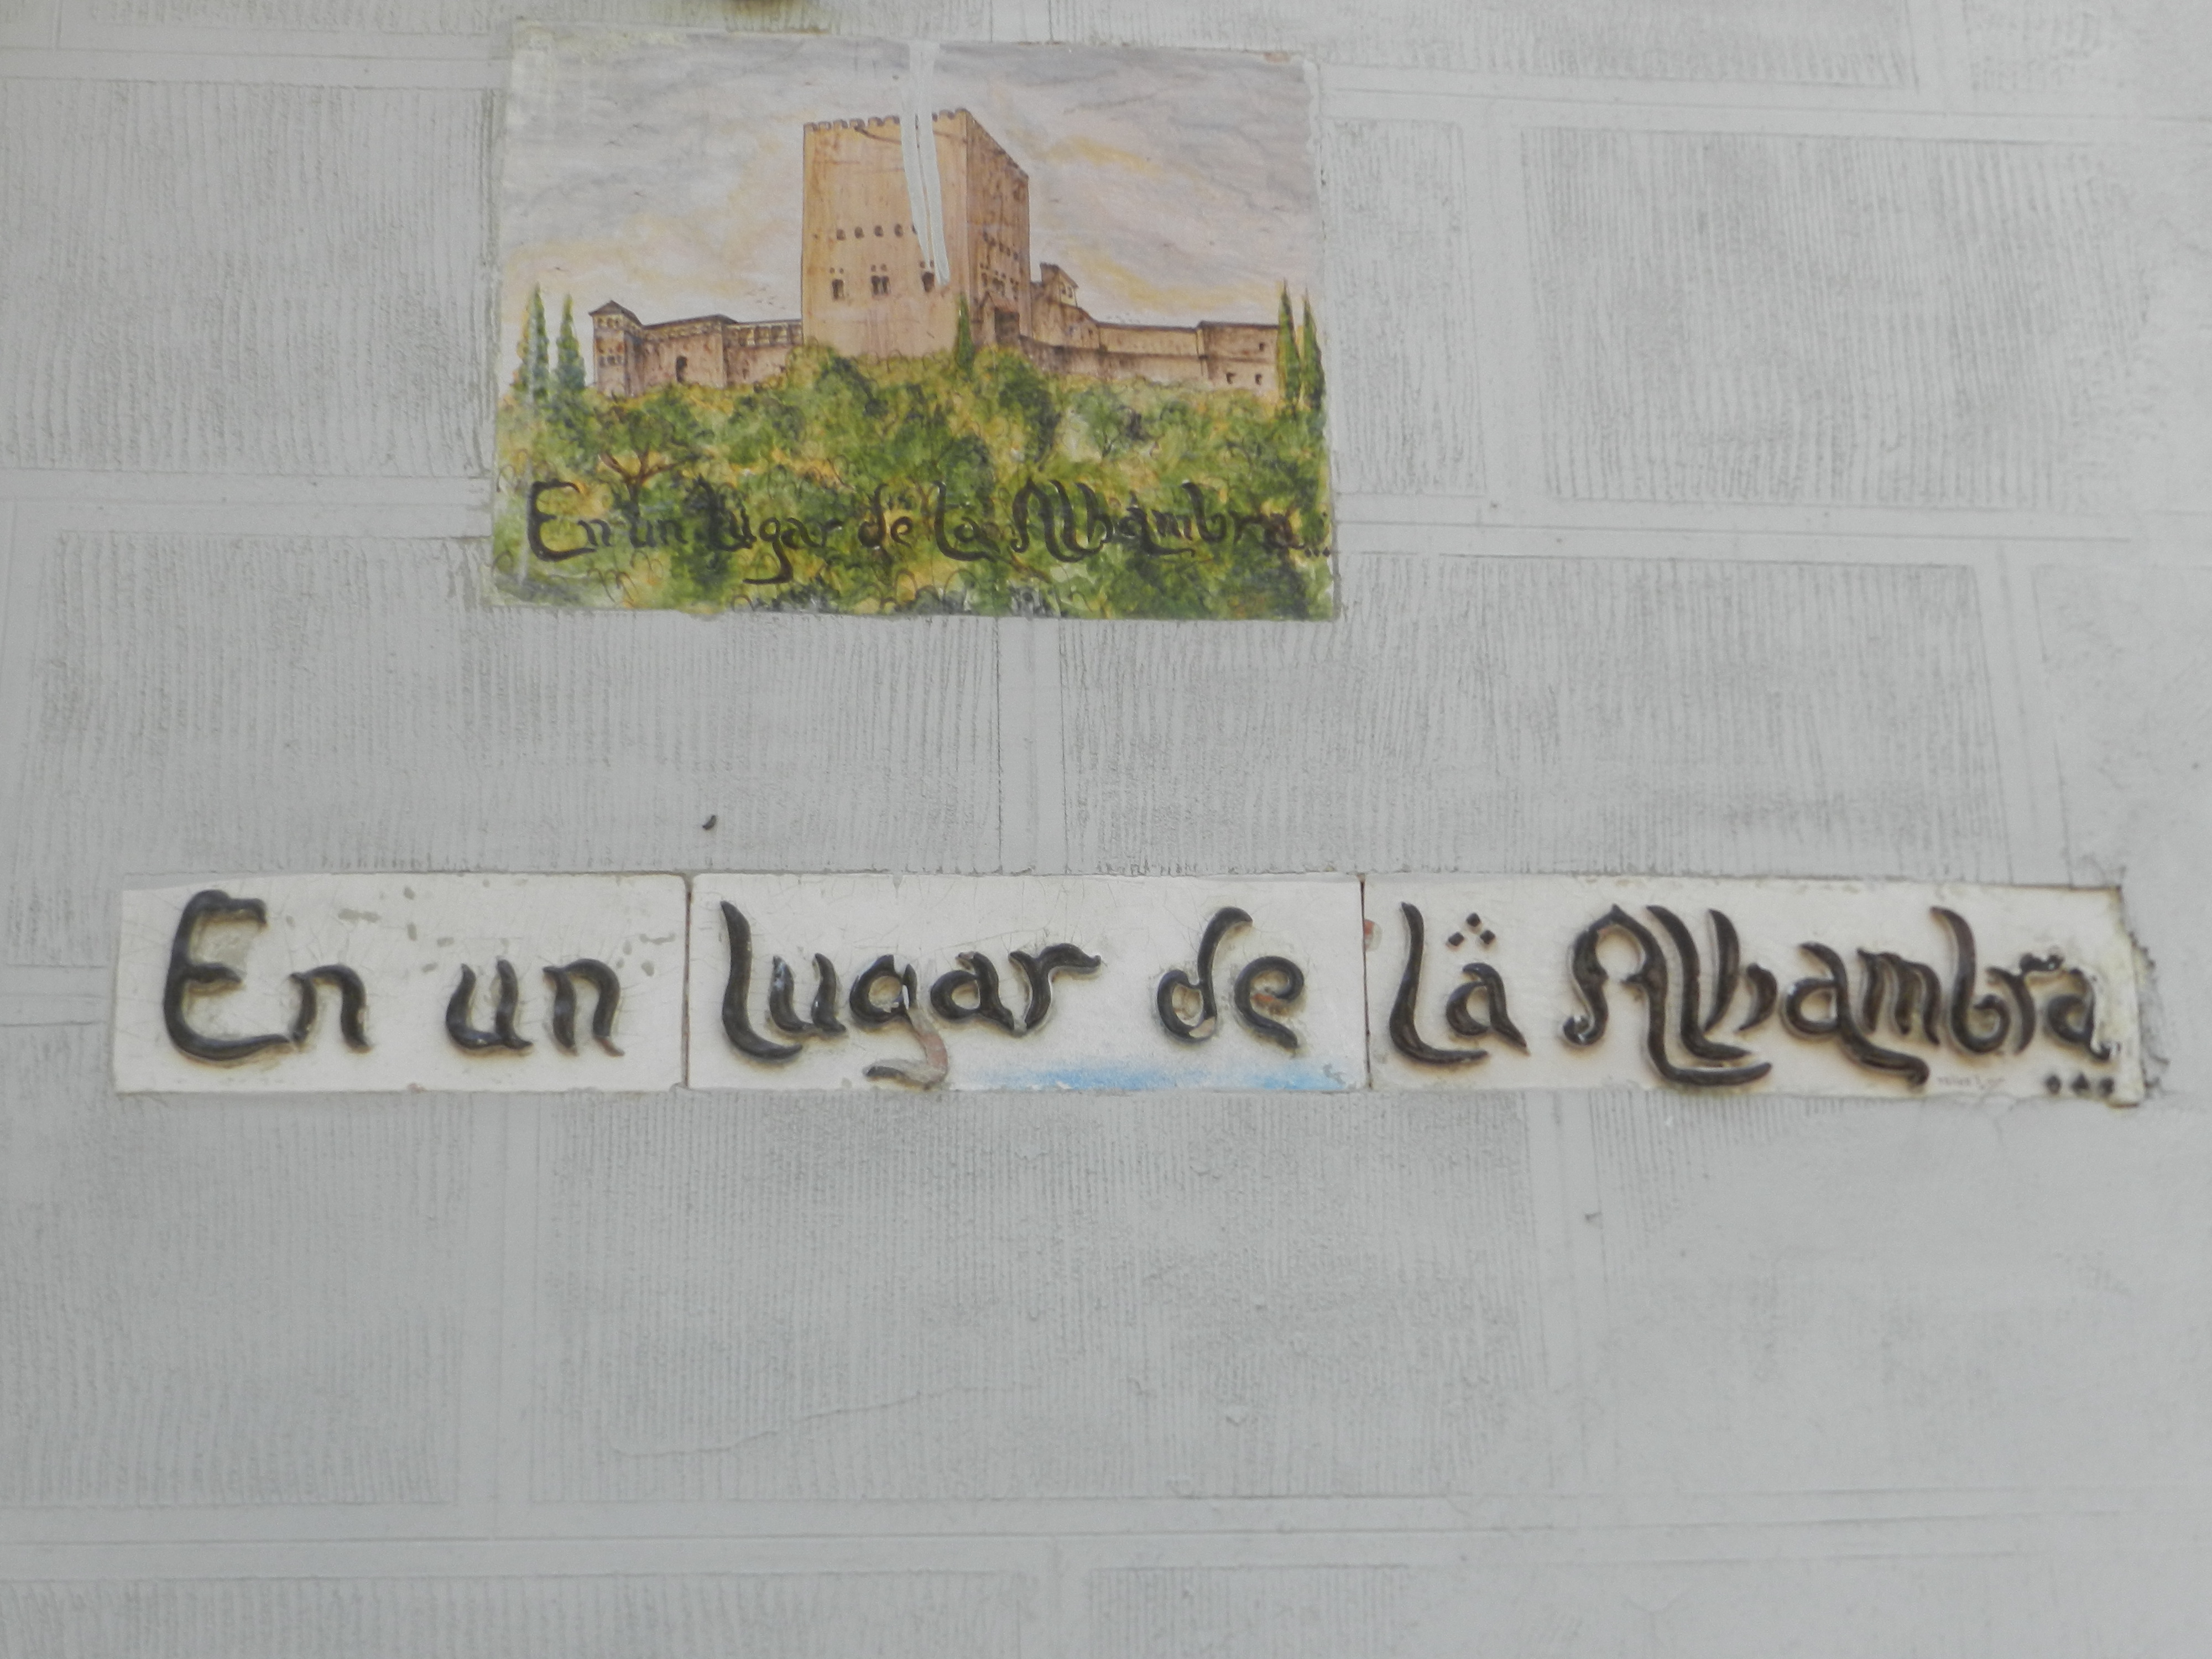 En un Lugar de La Alhambra...
En un Lugar de La Alhambra...